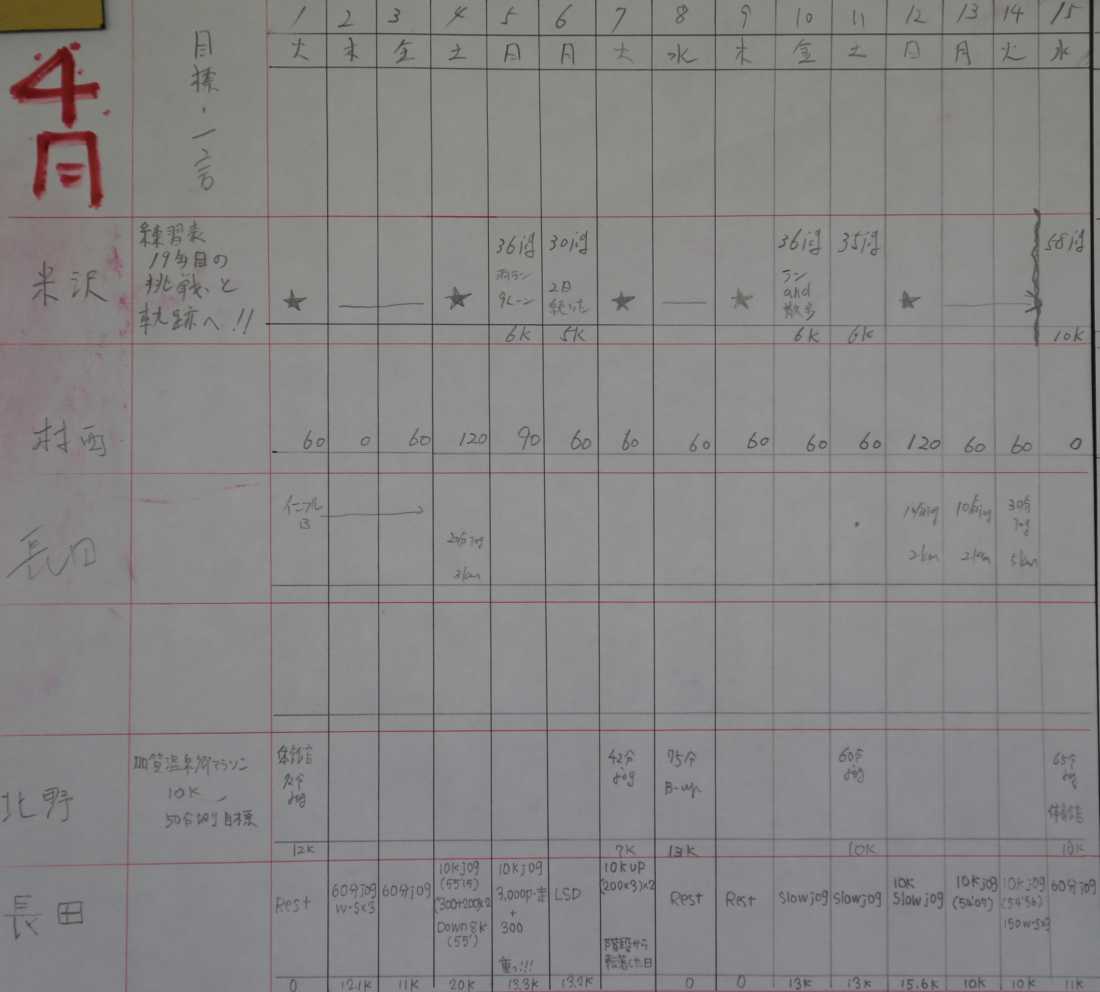 4月
目標・一言
1 2 3 4 5 6 7 8 9 10 11 12 13 14 15
火 木 金 土 日 月 火 水 木 金 土 日 月 火 水
米沢
練習表
19年目の
挑戦と
軌跡へ!!
★ ★ 36jog 30jog ★ ★ 36jog 35jog ★ 58jog
2日
ラン
and
散歩
6K 5K 6K 6K 10K
村西
60 0 60 120 90 60 60 60 60 60 60 120 60 60 0
長田
インフル
B
20分jog
3km
10分jog 30分
jog
2km 2km 5km
北野
加賀温泉郷マラソン
10K
50分切り目標
体育館
jog
42分
jog
75分
B-up
60分
jog
65分
jog
体育館
12K 7K 13K 10K 10K
長田
Rest
60分jog
W-S×3
60分jog
10Kjog
(55'15)
(300+200)×2
Down 8K
(55')
10Kjog
3,000P-走
+
300
重っ!!!
LSD
10Kup
(200×3)×2
階段から
転落した日
Rest
Rest
Slowjog
Slowjog
10K
Slowjog
10Kjog
10Kjog
150W-S×3
60分jog
0 12.1K 11K 20K 13.3K 13.2K 0 0 13K 13K 15.6K 10K 10K 11K